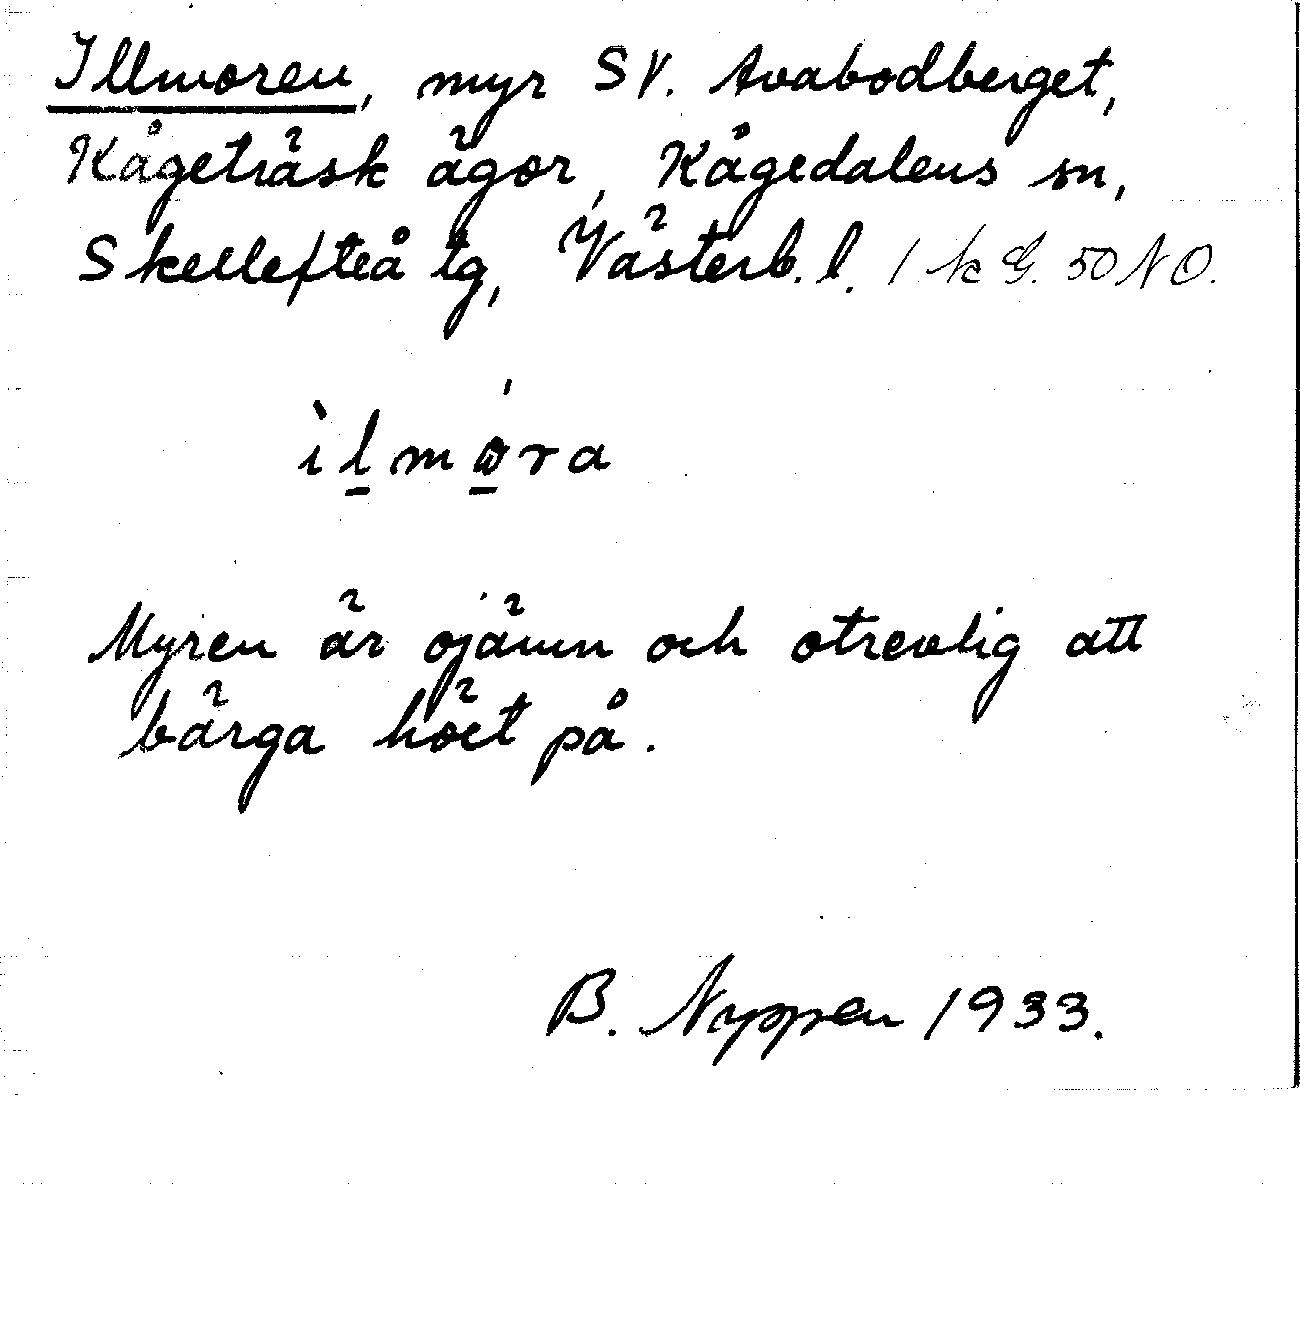 Illmoren, myr SV. Avabodberget,
Kågeträsk ägor, Kågedalens sn,
Skellefteå tg, Västerb. l. / k G. 50 NO.
ìlmóra
Myren är ojämn och otrevlig att
bärga höet på.
B. Nyppen 1933.